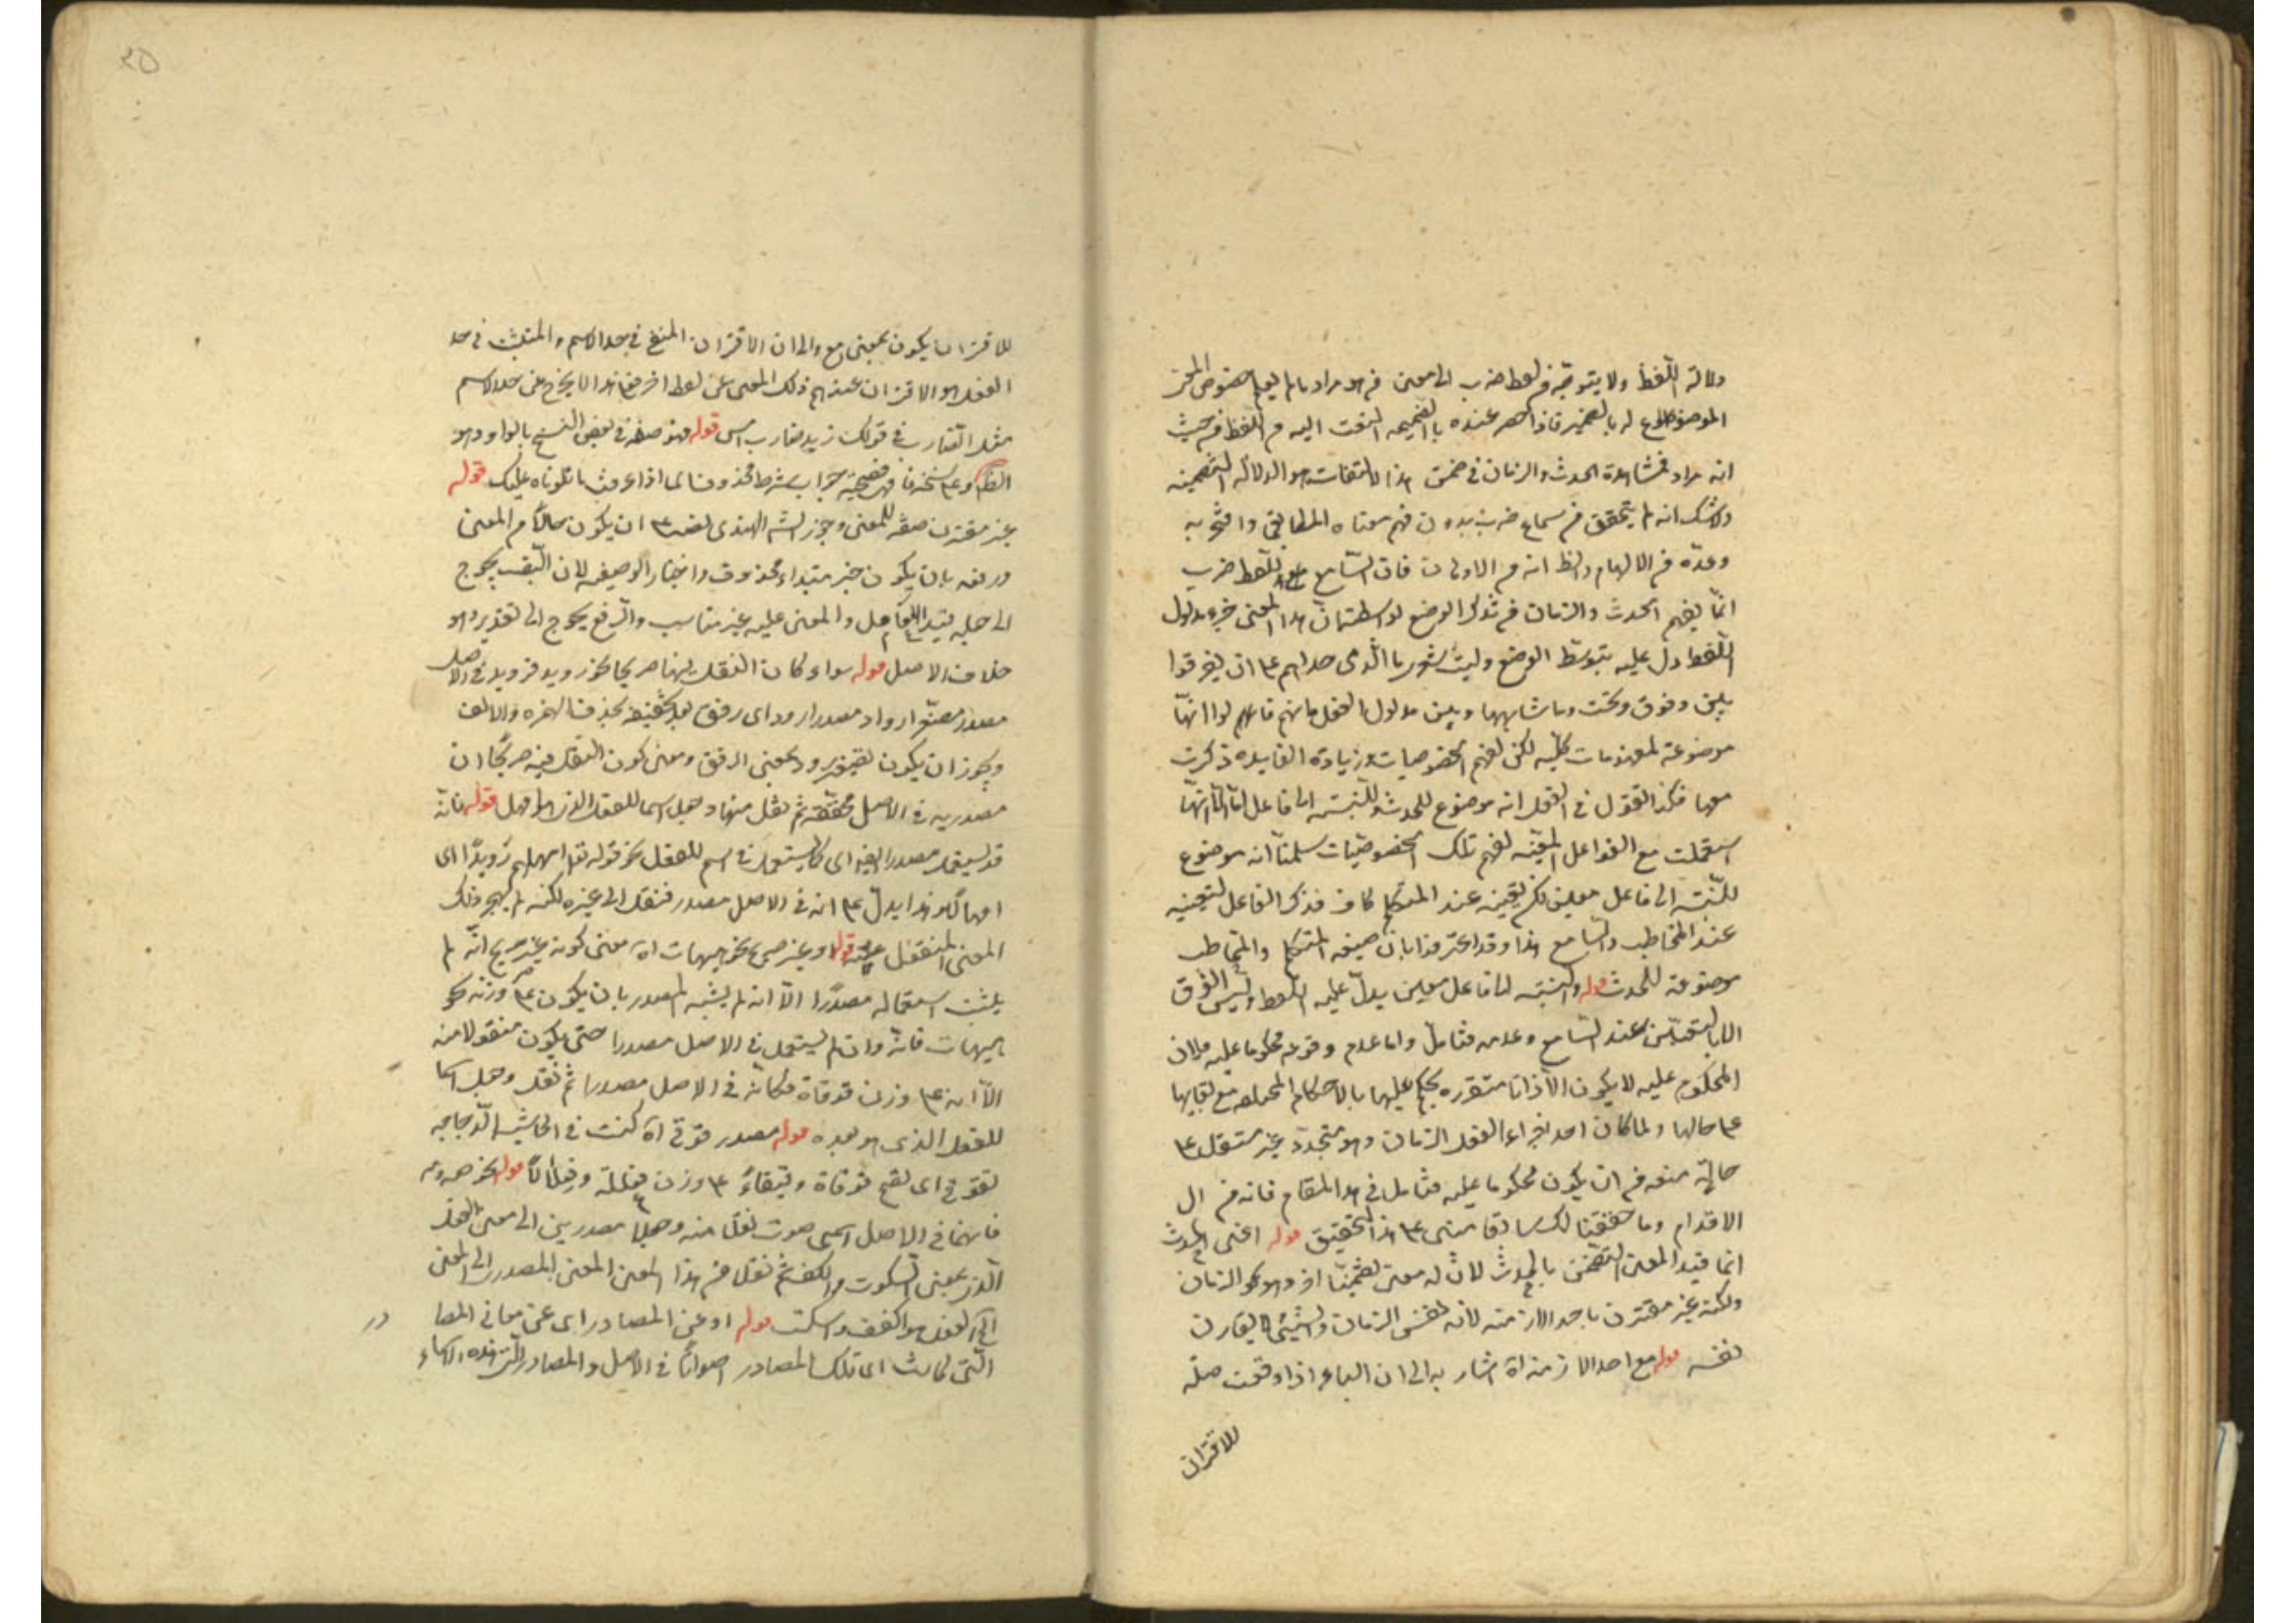 دلالة اللفظ ولا يتوجه من لفظ ضرب الى معنى هو مراد ما لم يعلم خصوص
الموضوع له بالضمير فاذا عنده التفت اليه من اللفظ من حيث
انه مراد فمشاهدة الحدث والزمان في ضمن هذا الالتفات هو الدلالة التضمنية
ولا شك انه لم يتحقق من سماع ضرب بدون فهم معناه المطابقي
وعده من الالهام والظ انه من الاولى فان السامع للفظ ضرب
انما يفهم الحدث والزمان من تذكر الوضع هذا المعنى جزء مدلول
اللفظ دل عليه بتوسط الوضع وليت شعري ما الذي حداهم ع ان يفرقوا
بين وفوق وتحت وما شابهها وبين مدلول الفعل فانهم قالوا انها
موضوعة لمفهومات كلية لكن لفهم الخصوصيات وزيادة الفايدة ذكرت
معها فكذا القول في الفعل انه موضوع للحدث والنسبة الى فاعل ما الا انها
استعملت مع الفواعل المعينة لفهم تلك الخصوصيات سلمنا انه موضوع
للنسبة الى فاعل معين لكن تعينه عند المتكلم كاف فذكر الفاعل لتعيينه
عند المخاطب والسامع هذا وقد اعترفوا بان صيغة المتكلم والمخاطب
موضوعة للحدث والنسبة الى فاعل معين يدل عليه اللفظ وليس الفرق
الا بالتعين عند السامع وعدمه فتامل واما عدم وقوعه محكوما عليه فلان
المحكوم عليه لا يكون الا ذاتا متقررة يحكم عليها بالاحكام مع بقايها
ع حالها ولما كان احد اجزاء الفعل الزمان وهو متجدد غير مستقل ع
حالة منعه من ان يكون محكوما عليه فتامل في هذا المقام فانه من ال
الاقدام وما حققنا لك سابقا مبني ع هذا التحقيق قوله اعني الحدث
انما قيد المعنى التضمني بالحدث لان له معنى تضمنيا اخر وهو الزمان
ولكنه غير مقترن باحد الازمنة لانه نفس الزمان والشيء لا يقارن
نفسه قوله مع احد الازمنة اه اشار به الى ان الباء اذا وقعت صلة
للاقتران
٢٥
للاقتران يكون بمعنى مع والى ان الاقتران المنفي في حد الاسم والمثبت في حد
الفعل هو الاقتران عند فهم ذلك المعنى عن لفظ اخر لا يخرج عن حد الاسم
مثل الضارب في قولك زيد ضارب امس قوله فهو صفة في بعض النسخ بالواو وهو
الظ وع نسخة فا فهي فصيحة جواب شرط محذوف اي اذا عرفت ما تلوناه عليك قوله
غير مقترن صفة للمعنى وجوز الشه الهندي نصبه ع ان يكون حالا من المعنى
ورفعه بان يكون خبر مبتداء محذوف واختار الوصفية لان النصب يحوج
الى جعله قيد العامل والمعنى عليه غير مناسب والرفع يحوج الى تقدير وهو
خلاف الاصل قوله سواء كان النقل فيها صريحا نحو رويد فرويد في الاصل
مصدر مصغر ارواد مصدر ارود اي رفق بحذف الهمزة والالف
ويجوز ان يكون تصغير رود بمعنى الرفق ومعنى كون النقل فيه صريحا ان
مصدريه في الاصل محققة ثم نقل منها وجعل اسما للفعل الذي هو امهل قوله فانه
قد يستعمل مصدرا ايضا اي كما يستعمل في اسم للفعل نحو قوله تعالى امهلهم رويدا اي
امهالا وهذا يدل ع انه في الاصل مصدر فنقل الى غيره لكنه لم يهجر ذلك
المعنى المنقول عنه قوله او غير صريح نحو هيهات اه معنى كونه غير صريح انه لم
يثبت استعماله مصدرا الا انه لم يشبه المصدر بان يكون ع وزنه نحو
هيهات فانه وان لم يستعمل في الاصل مصدرا حتى يكون منقولا منه
الا انه ع وزن قوقاة فكانه في الاصل مصدرا ثم نقل وجعل اسما
للفعل الذي هو بعد قوله مصدر قوقى اه كنت في الحاشية الدجاجة
تقوقي اي تصيح قوقاة وقيقاء ع وزن فعللة وفعلالا قوله نحو صه ومه
فانهما في الاصل اسمي صوت نقلا منه وجعلا مصدرين الى معنى الفعل
الذي بمعنى السكوت والكف ثم نقل من هذا المعنى المعنى المصدري الى المعنى
الفعل هو اكفف واسكت قوله او عن المصادر اي عن معاني المصا
در
التي كانت اي تلك المصادر اصواتا في الاصل والمصادر التي هذه الاسماء